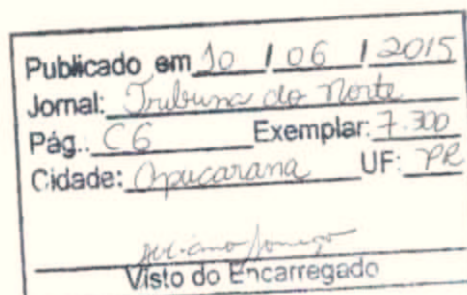 Publicado em 10 / 06 / 2015
Jornal: Tribuna do Norte
Pág.: C6 Exemplar: 7.300
Cidade: Apucarana UF: PR
Visto do Encarregado